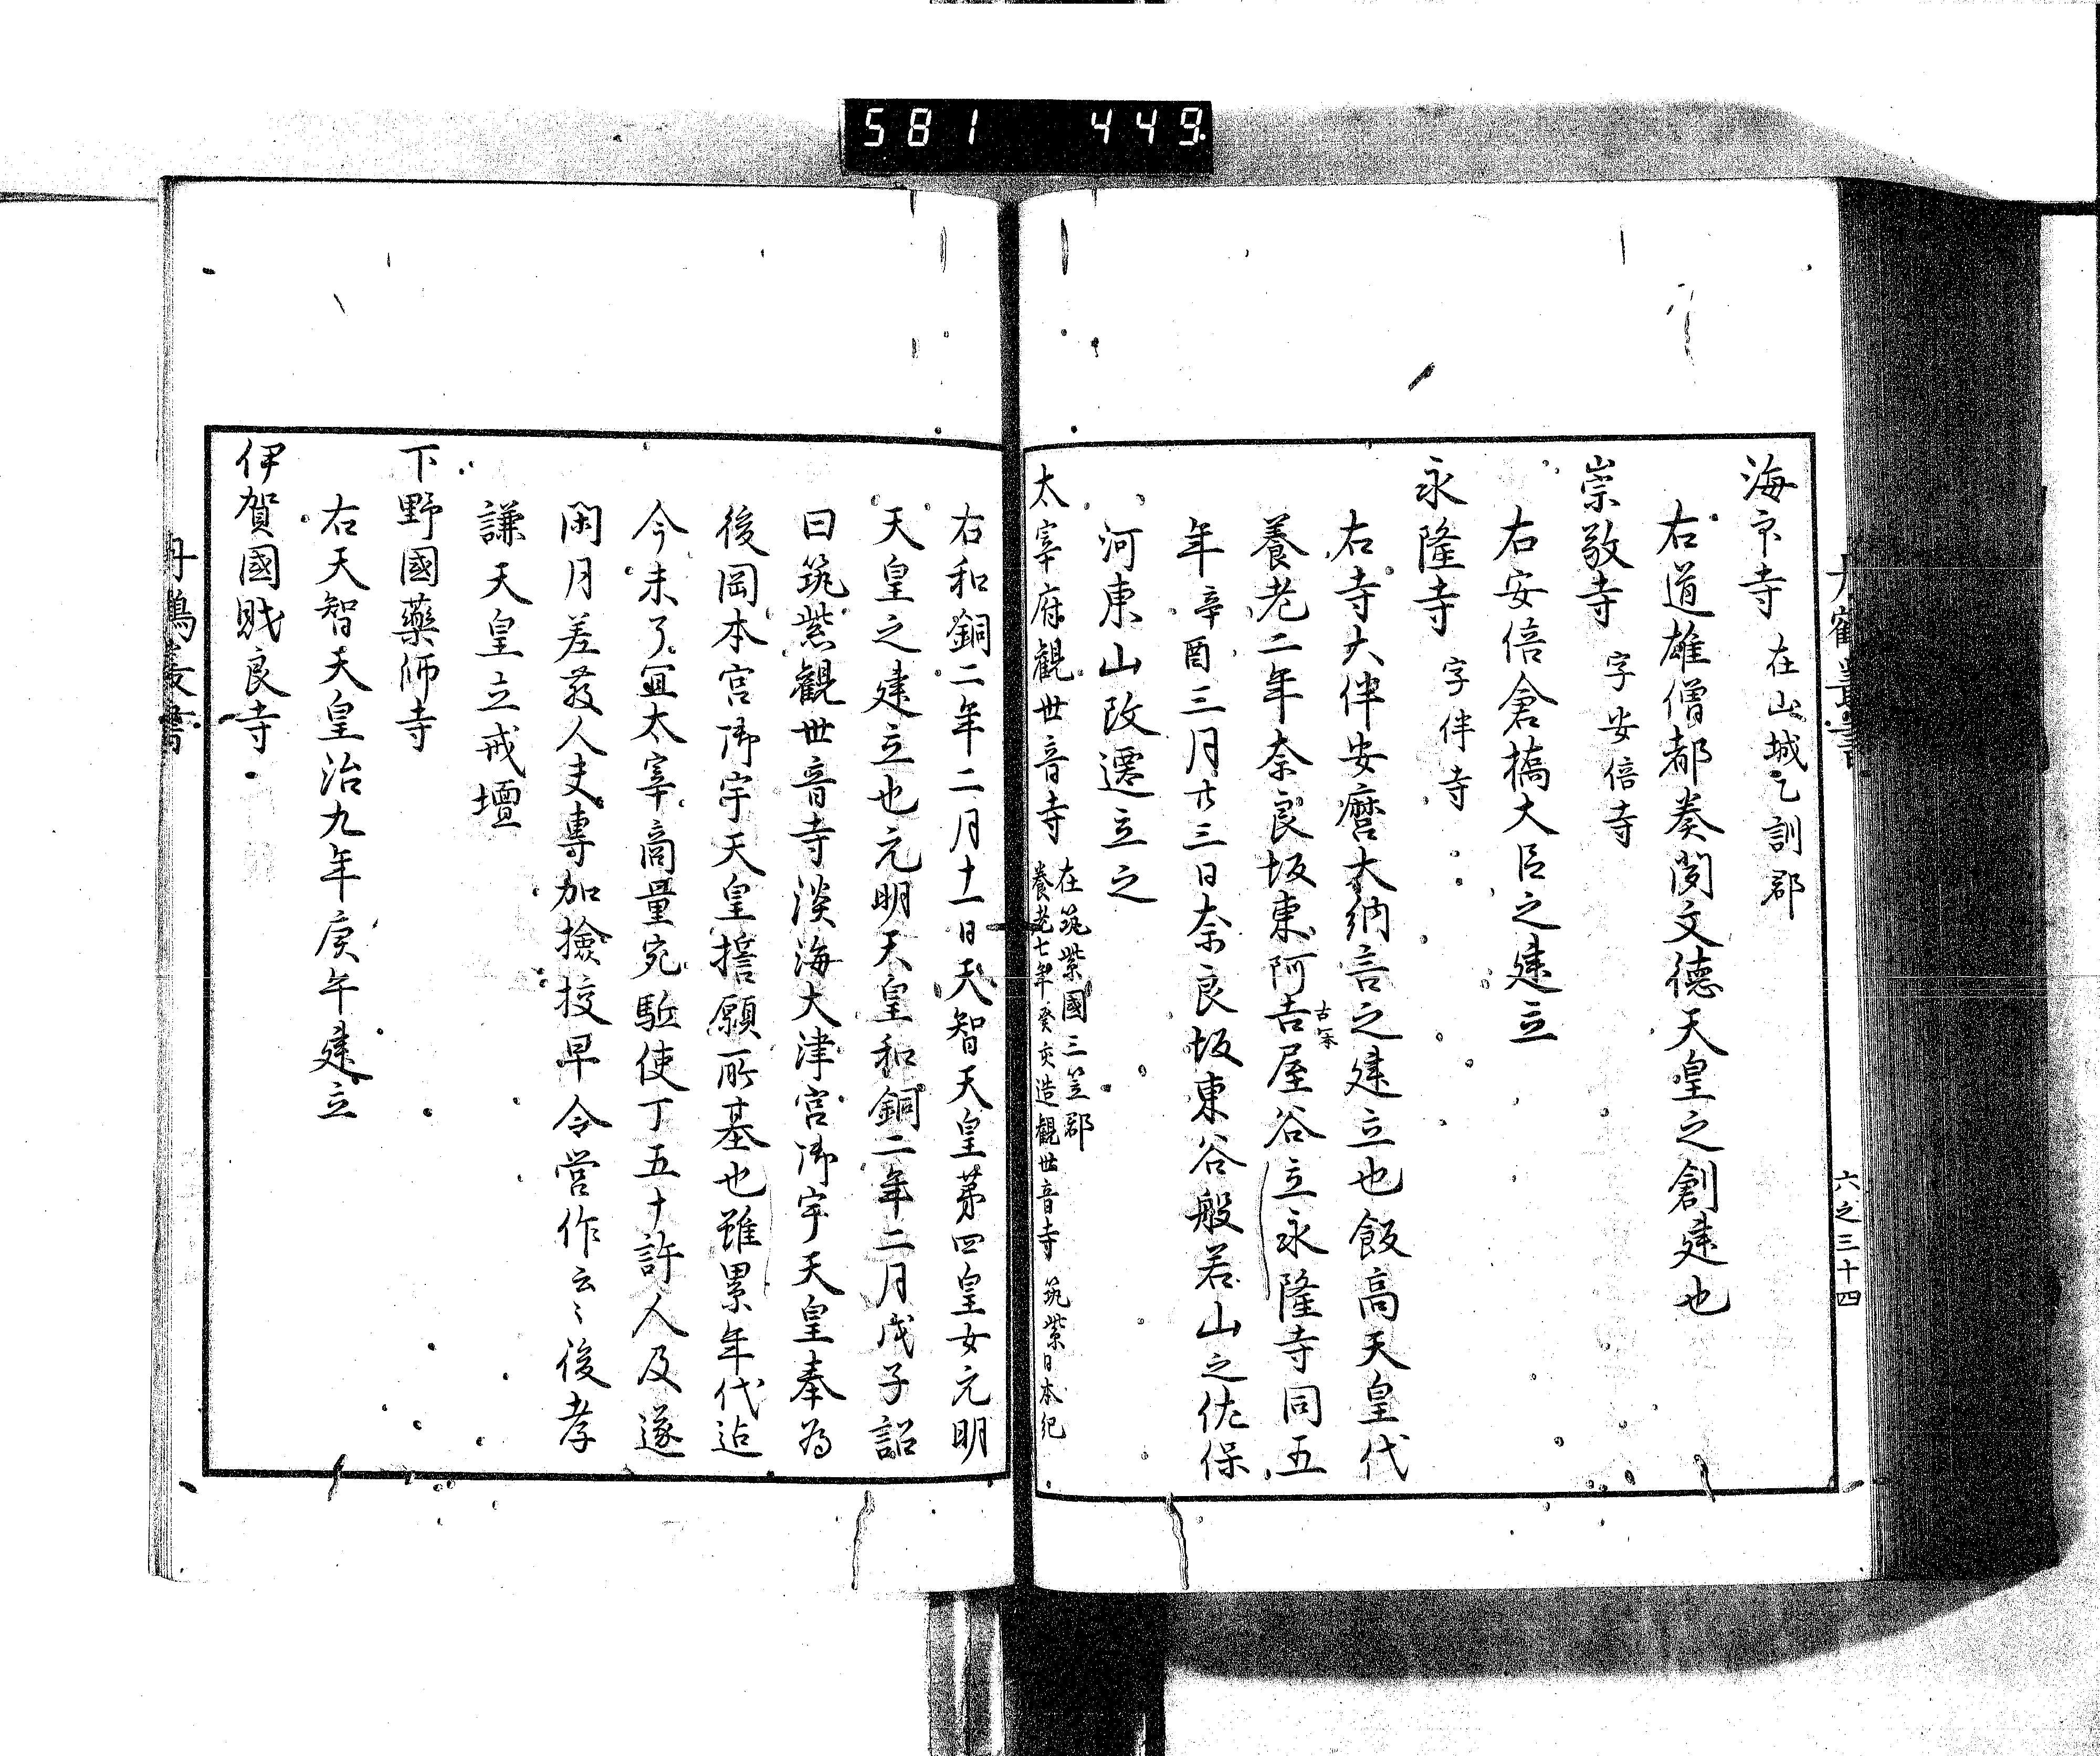 581 449
海印寺 在山城乙訓郡
右道雄僧都奏聞文徳天皇之創建也
崇敬寺 字安倍寺
右安倍倉橋大臣之建立
永隆寺 字伴寺
右寺大伴安麿大納言之建立也飯高天皇代
養老二年奈良坂東阿古屋谷立永隆寺同五
年辛酉三月廿三日奈良坂東谷般若山之佐保
河東山改遷立之
太宰府観世音寺 在筑紫國三笠郡
養老七年癸亥造観世音寺 筑紫日本紀
六之三十四
右和銅二年二月十一日天智天皇第四皇女元明
天皇之建立也元明天皇和銅二年二月戊子詔
曰筑紫觀世音寺淡海大津宮御宇天皇奉為
後岡本宮御宇天皇誓願所基也雖累年代迄
今未了宜太宰商量宛駈使丁五十許人及遂
閑月差發人夫專加撿挍早令営作云々後孝
謙天皇立戒壇
下野國藥師寺
右天智天皇治九年庚午建立
伊賀國財良寺
丹鶴叢書